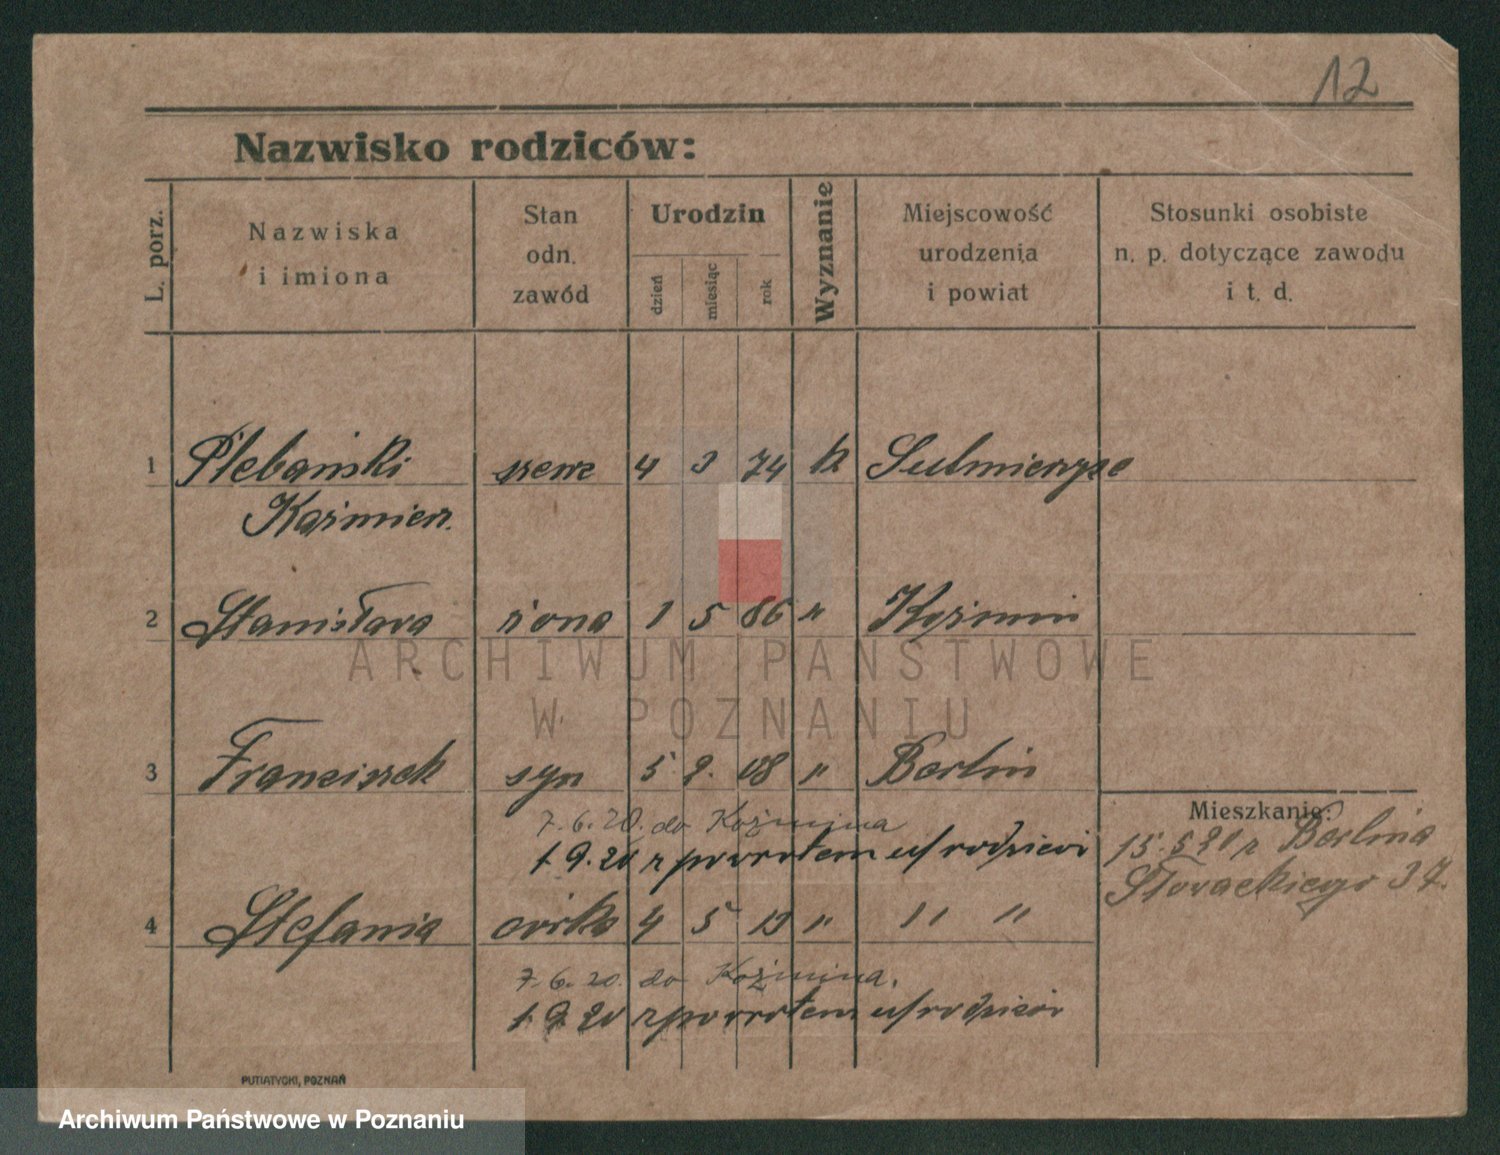 12
Nazwisko rodziców:
L. porz.
Nazwiska
i imiona
Stan
odn.
zawód
Urodzin
dzień
miesiąc
rok
Wyznanie
Miejscowość
urodzenia
i powiat
Stosunki osobiste
n. p. dotyczące zawodu
i t. d.
1 Plebański szewc 4 3 74 k Sulmierzyce
Kaźmierz.
2 Stanisława żona 1 5 86 " Koźmin
ARCHIWUM PAŃSTWOWE
W POZNANIU
3 Franciszek syn 5 2. 08 " Berlin
7.6.20. do Koźmina
1 9.20 z powrotem u/rodziców
Mieszkanie:
15.5 20 z Berlina
Słowackiego 37.
4 Stefania córka 4 5 13 " " "
7.6.20. do Koźmina.
1 9 20 z powrotem u/rodziców
PUTIATYCKI, POZNAŃ
Archiwum Państwowe w Poznaniu